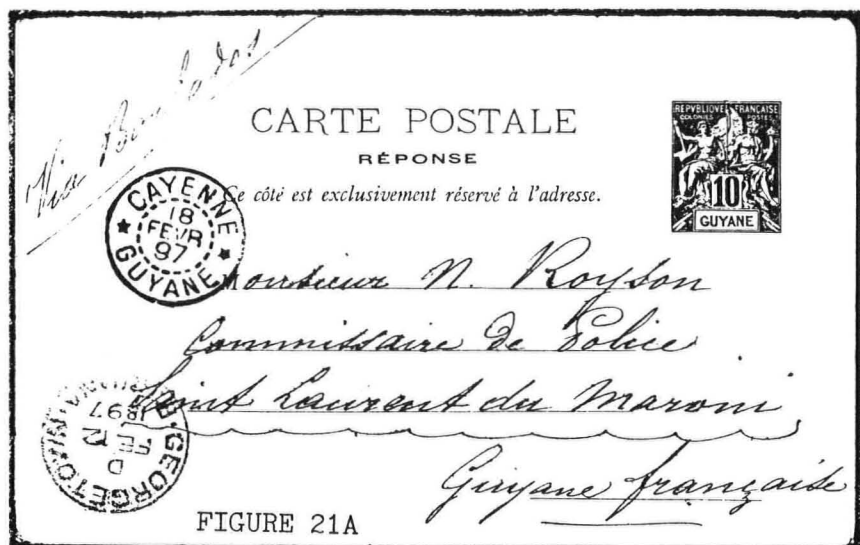 Via Barbados
CARTE POSTALE
RÉPONSE
Ce côté est exclusivement réservé à l'adresse.
REPVBLIQVE FRANÇAISE
COLONIES POSTES
10
GUYANE
CAYENNE
18
FEVR
97
GUYANE
Monsieur N. Royson
Commissaire de Police
Saint Laurent du Maroni
Guyane française
GEORGETOWN
D
FE 12
1897
FIGURE 21A